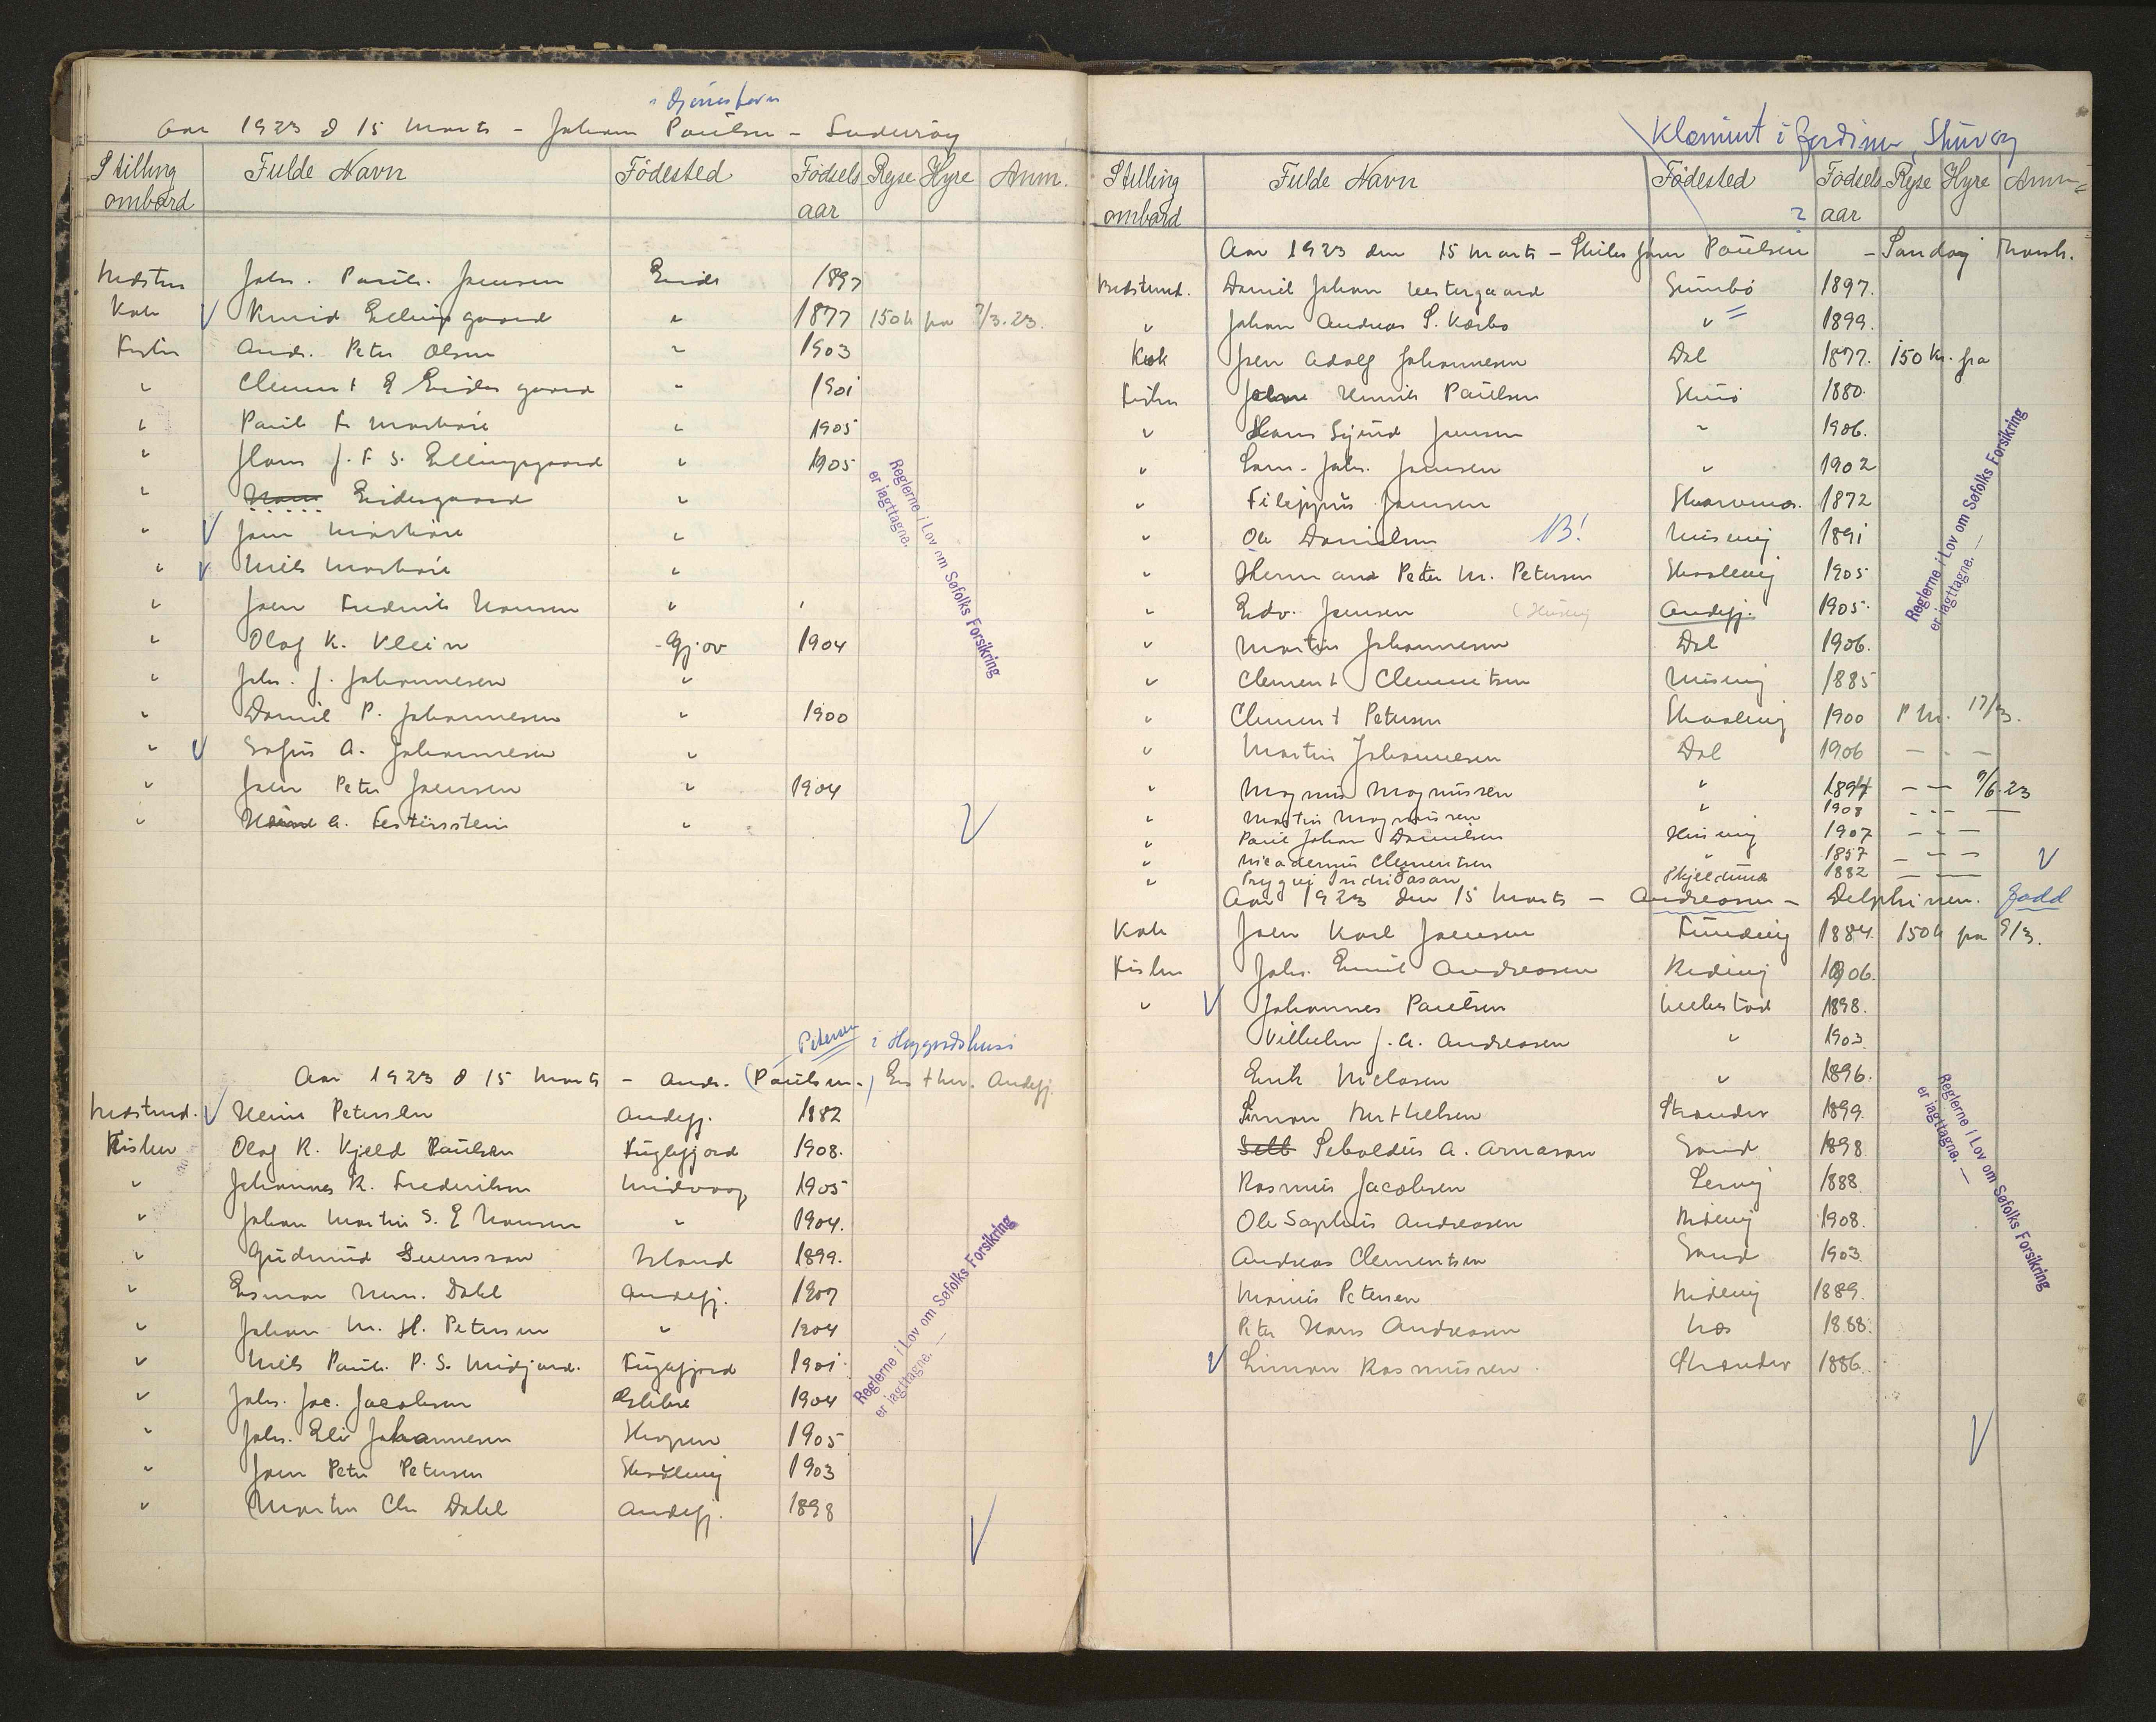 Aar 1923 d 15 Marts - Johan Poulsen - Suderøy
Stilling ombord Fulde Navn Fødested Fødsels aar Rejse Hyre Anm.
Johs. Paul. Joensen Eide 1897
Kok Knud Ellingsgaard " 1877 150 k fra 7/3.23.
Fisker Andr. Peter Olsen " 1903
" Clement E Eidesgaard " 1901
" Paul F. Morkøre " 1905
" Hans J. F. S. Ellingsgaard " 1905
" Eidesgaard "
" Joen Morkøre "
" Niels Morkøre "
" Joen Frederik Hansen "
" Olaf K. Klein Gjov 1904
" Johs. J. Johannesen "
" Daniel P. Johannesen " 1900
" Sofus A. Johannesen "
" Joen Peter Joensen " 1904
" A. Festirsstein "
Reglerne i Lov om Søfolks Forsikring
er iagttagne.
Petersen i
Aar 1923 d 15 Marts - Andr. (Poulsen.) Esther. Andefj.
Bedstmd. Heini Petersen Andefj. 1882
Fisker Olaf R. Kjeld Poulsen Fuglefjord 1908.
" Johannes R. Frederiksen Midvaag 1905
" Johan Martin S. E Hansen " 1904.
" Gudmund Svensson Island 1899.
" Esmar Dahl Andefj. 1907
" Johan M. H. Petersen " 1904
" Niels Paul. P. S. Midjord. Fuglefjord 1901.
" Johs. Jac. Jacobsen 1904
" Johs. Eli Johannesen 1905
" Joen Petur Petersen Skaalevig 1903
" Martin Chr Dahl Andefj. 1898
Reglerne i Lov om Søfolks Forsikring
er iagttagne. —
Klæmint i
Stilling ombord Fulde Navn Fødested Fødsels aar Rejse Hyre Anm
Aar 1923 den 15 Marts - Poulsen - Sandoy Thorsh.
Bedstmd. Daniel Johan Vestergaard Sumbø 1897.
" Johan Andreas S. Kærbo " 1899.
Kok Joen Adolf Johannesen Dal 1877. 150 kr. fra
Fisker Henrik Poulsen Skuø 1880.
" Hans Sigurd Joensen " 1906.
" Sam. Johs. Joensen " 1902
" Filippus Joensen 1872
" Ole Danielsen B! Husevig 1891
" Hermand Peter M. Petersen Skaalevig 1905
" Edv. Joensen (Husevig Andefj. 1905.
" Martin Johannesen Dal 1906.
" Clement Clementsen Husevig 1885
" Clement Petersen Skaalevig 1900 P.M. 17/3.
" Martin Johannesen Dal 1906 — " —
" Magnus Magnussen " — — 9/6.23
" Martin Magnussen " 1908 — " —
" Paul Johan Danielsen Husevig 1907 — — —
" Nicodemus Clementsen " 1857 — — —
" Tryggvi Indridason 1882 — —
Reglerne i Lov om Søfolks Forsikring
er iagttagne. —
Aar 1923 den 15 Marts - Andreasen - Delphinen.
Kok Joen Karl Joensen Funding 1884. 150 k fra 9/3.
Fisker Johs. Emil Andreasen 1906.
" Johannes Poulsen Velbestad 1898.
Vilhelm J. A. Andreasen " 1903
Erik Niclasen " 1896.
Simon Berthelsen Strænder 1899.
Seboldus A. Arnason Sand 1898
Rasmus Jacobsen Lervig 1888
Ole Sophus Andreasen 1908.
Andreas Clementsen Sand 1903
Marius Petersen 1889.
Peter Hans Andreasen Næs 1888.
Simon Rasmussen Strænder 1886.
Reglerne i Lov om Søfolks Forsikring
er iagttagne. —